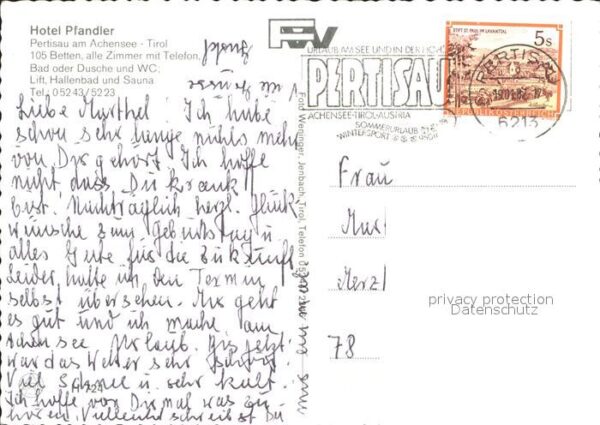 Hotel Pfandler
Pertisau am Achensee · Tirol
105 Betten, alle Zimmer mit Telefon,
Bad oder Dusche und WC;
Lift, Hallenbad und Sauna
Tel.: 05243/5223
Liebe Ich habe
schon sehr lange nichts mehr
von Dir gehört. Ich hoffe
nicht, dass Du krank
bist. Nachträglich herzl. Glück-
wünsche zum Geburtstag u.
alles Gute für die Zukunft,
leider hatte ich den Termin
selbst übersehen. Mir geht
es gut und ich mache am
Achensee Urlaub. Bis jetzt
war das Wetter sehr
Viel Schnee u. sehr kalt.
Ich hoffe von Dir mal was zu
hören. Vielleicht schreibst Du
A 724
Foto Weninger, Jenbach, Tirol, Telefon
URLAUB AM SEE UND IN DER
PERTISAU
ACHENSEE-TIROL-AUSTRIA
SOMMERURLAUB
WINTERSPORT
STIFT ST. PAUL IM LAVANTTAL
5s
REPUBLIK ÖSTERREICH
PERTISAU
6213
Frau
Merzl
78
privacy protection
Datenschutz